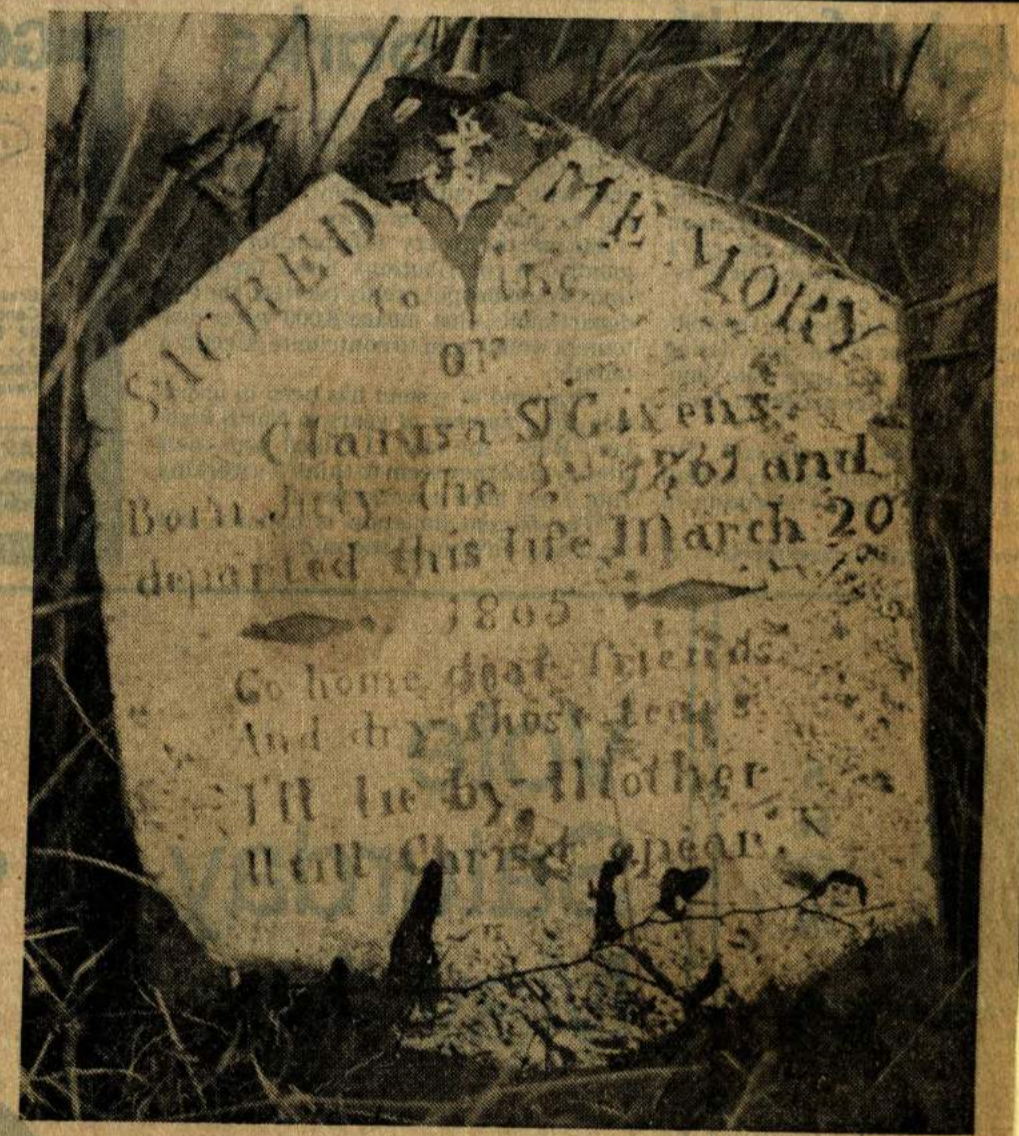 SACRED MEMORY
to the
OF
Clarisa S Givens
Born July the and
departed this life March 20
1865
Go home dear friends
And dry those tears
I'll lie by Mother
Utill Christ apear.